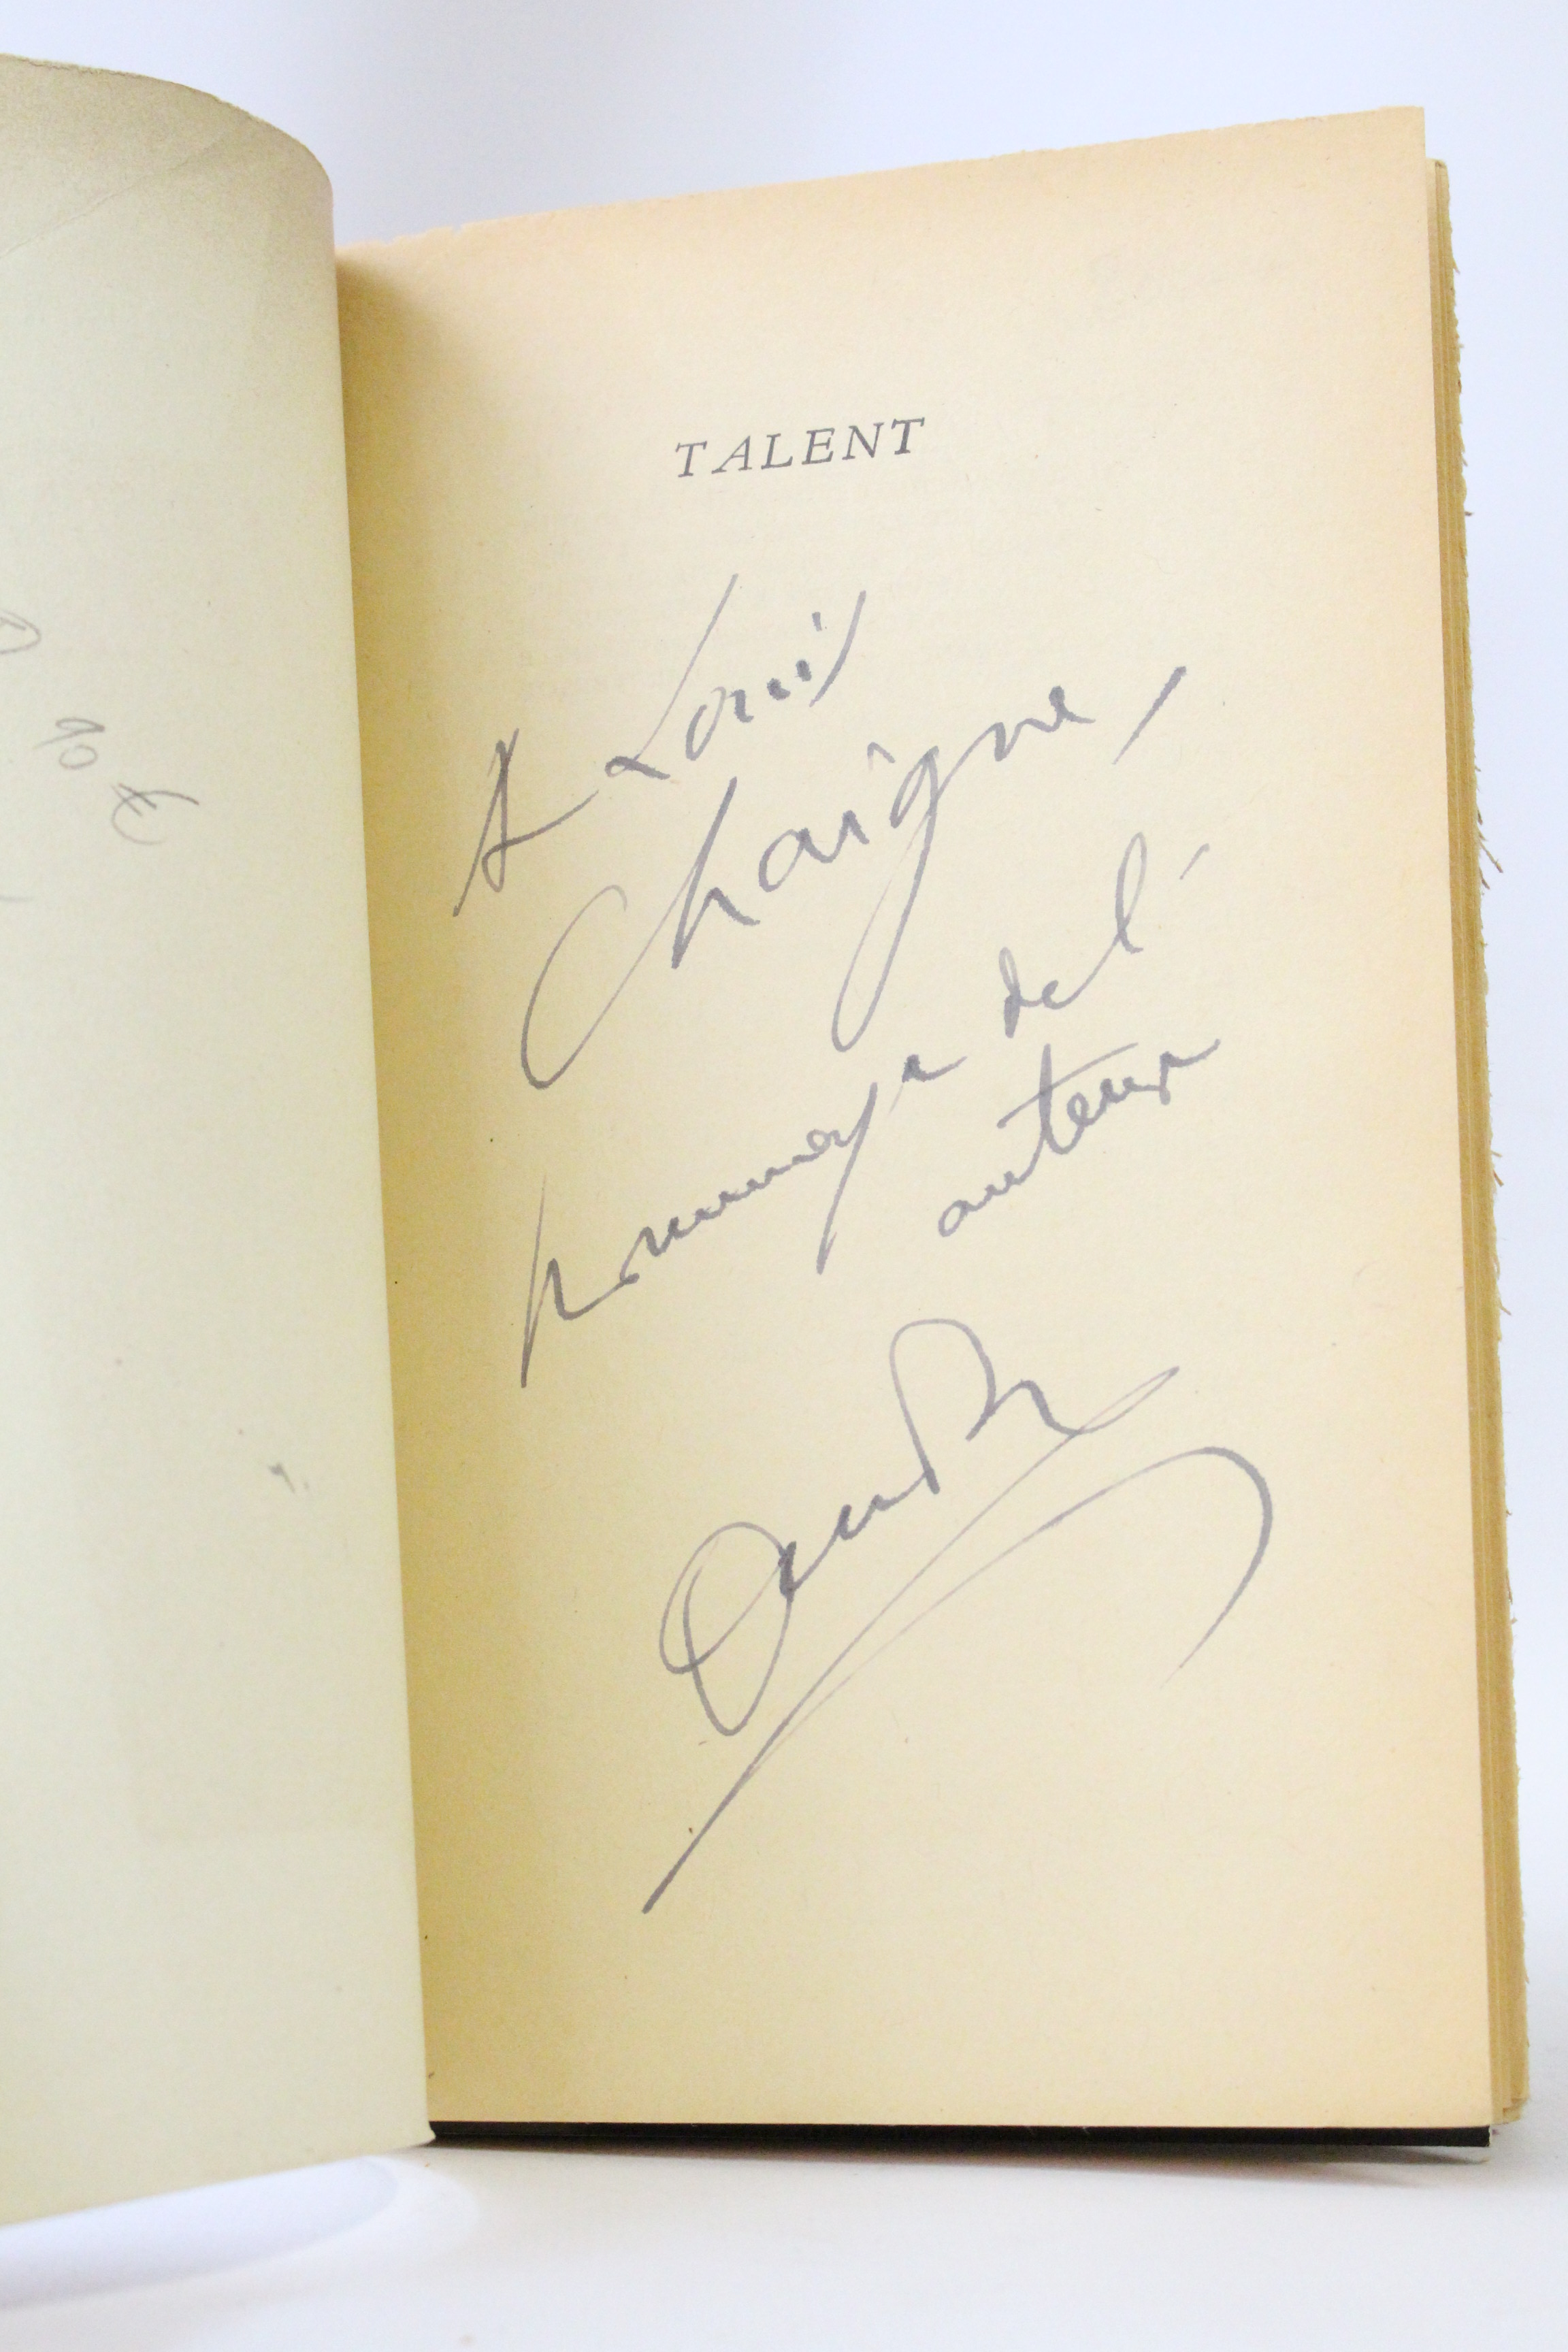 90 €
TALENT
A Louis
Chaigne,
hommage de l'
auteur